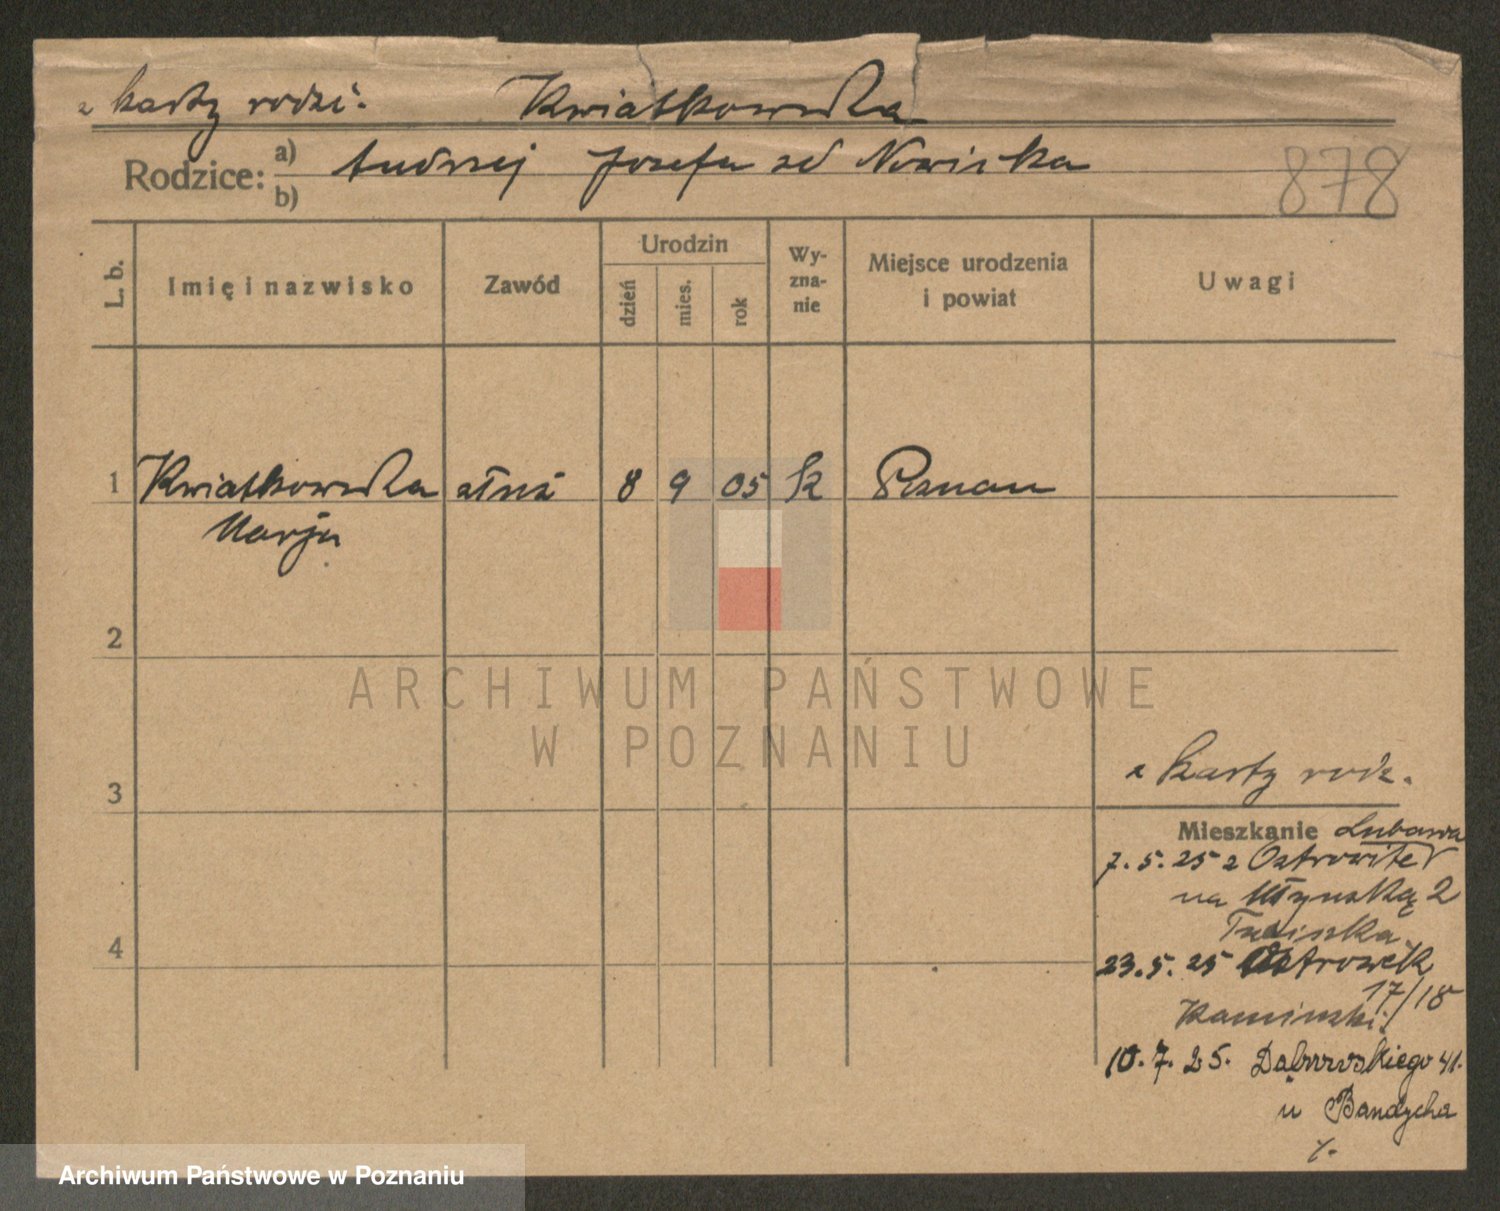 z karty rodzi. Kwiatkowska
Rodzice: a) Andrzej Józefa zd Nowicka
b)
878
L. b. Imię i nazwisko Zawód Urodzin dzień mies. rok Wyznanie Miejsce urodzenia i powiat Uwagi
1 Kwiatkowska służ 8 9 05 k Poznan
Marja
2
ARCHIWUM PAŃSTWOWE
W POZNANIU
z karty rodz.
3
Mieszkanie Lubawa
7. 5. 25 z Ostrowite
na Młyńską 2
4
23. 5. 25 Ostrowek
17/18
Kaminski
10. 7. 25. Dąbrowskiego 41.
u Bandycha
Archiwum Państwowe w Poznaniu